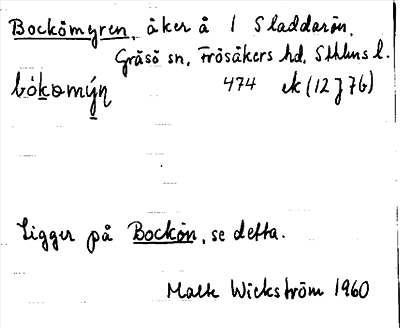 Bockömyren, åker å 1 Sladdarön,
Gräsö sn, Frösåkers hd, Sthlms l.
bòkomýn 474 ek (12 J 7b)
Ligger på Bockön, se detta.
Malte Wickström 1960